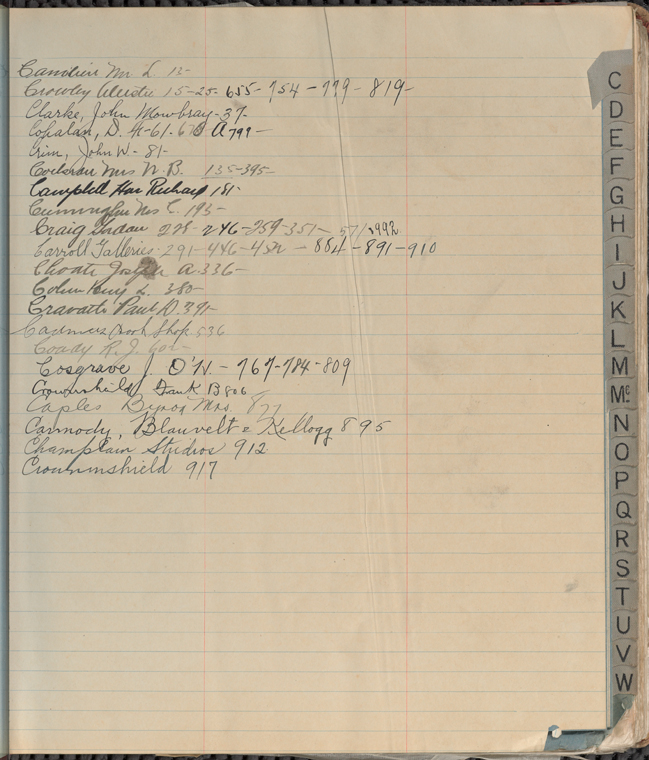 Mr. L. 12-
Crowley Aleister 15-25-655-754-779-819-
Clarke, John Mowbray-37-
Copalan, D. 41-61-670 A 799-
Crim, John W- 81-
Cochran Mrs W. B. 135-395-
Campbell Hon Richard 181-
Cunningham Mrs C. 193-
Craig Gordon 228-246-259-351-571
Carroll Galleries-291-446-452-884-891-910
Choate Joseph A. 336-
L. 380-
Cravath Paul D. 391-
Cadmus Book Shop 536
Coady R. J. 602-
Cosgrave J. O'H. - 767-784-809
Crowninshield Frank B 806
Caples Byron Mrs. 877
Carmody, Blauvelt & Kellogg 895
Champlain Studios 912
Crowninshield 917
C
D
E
F
G
H
I
J
K
L
M
Mc
N
O
P
Q
R
S
T
U
V
W